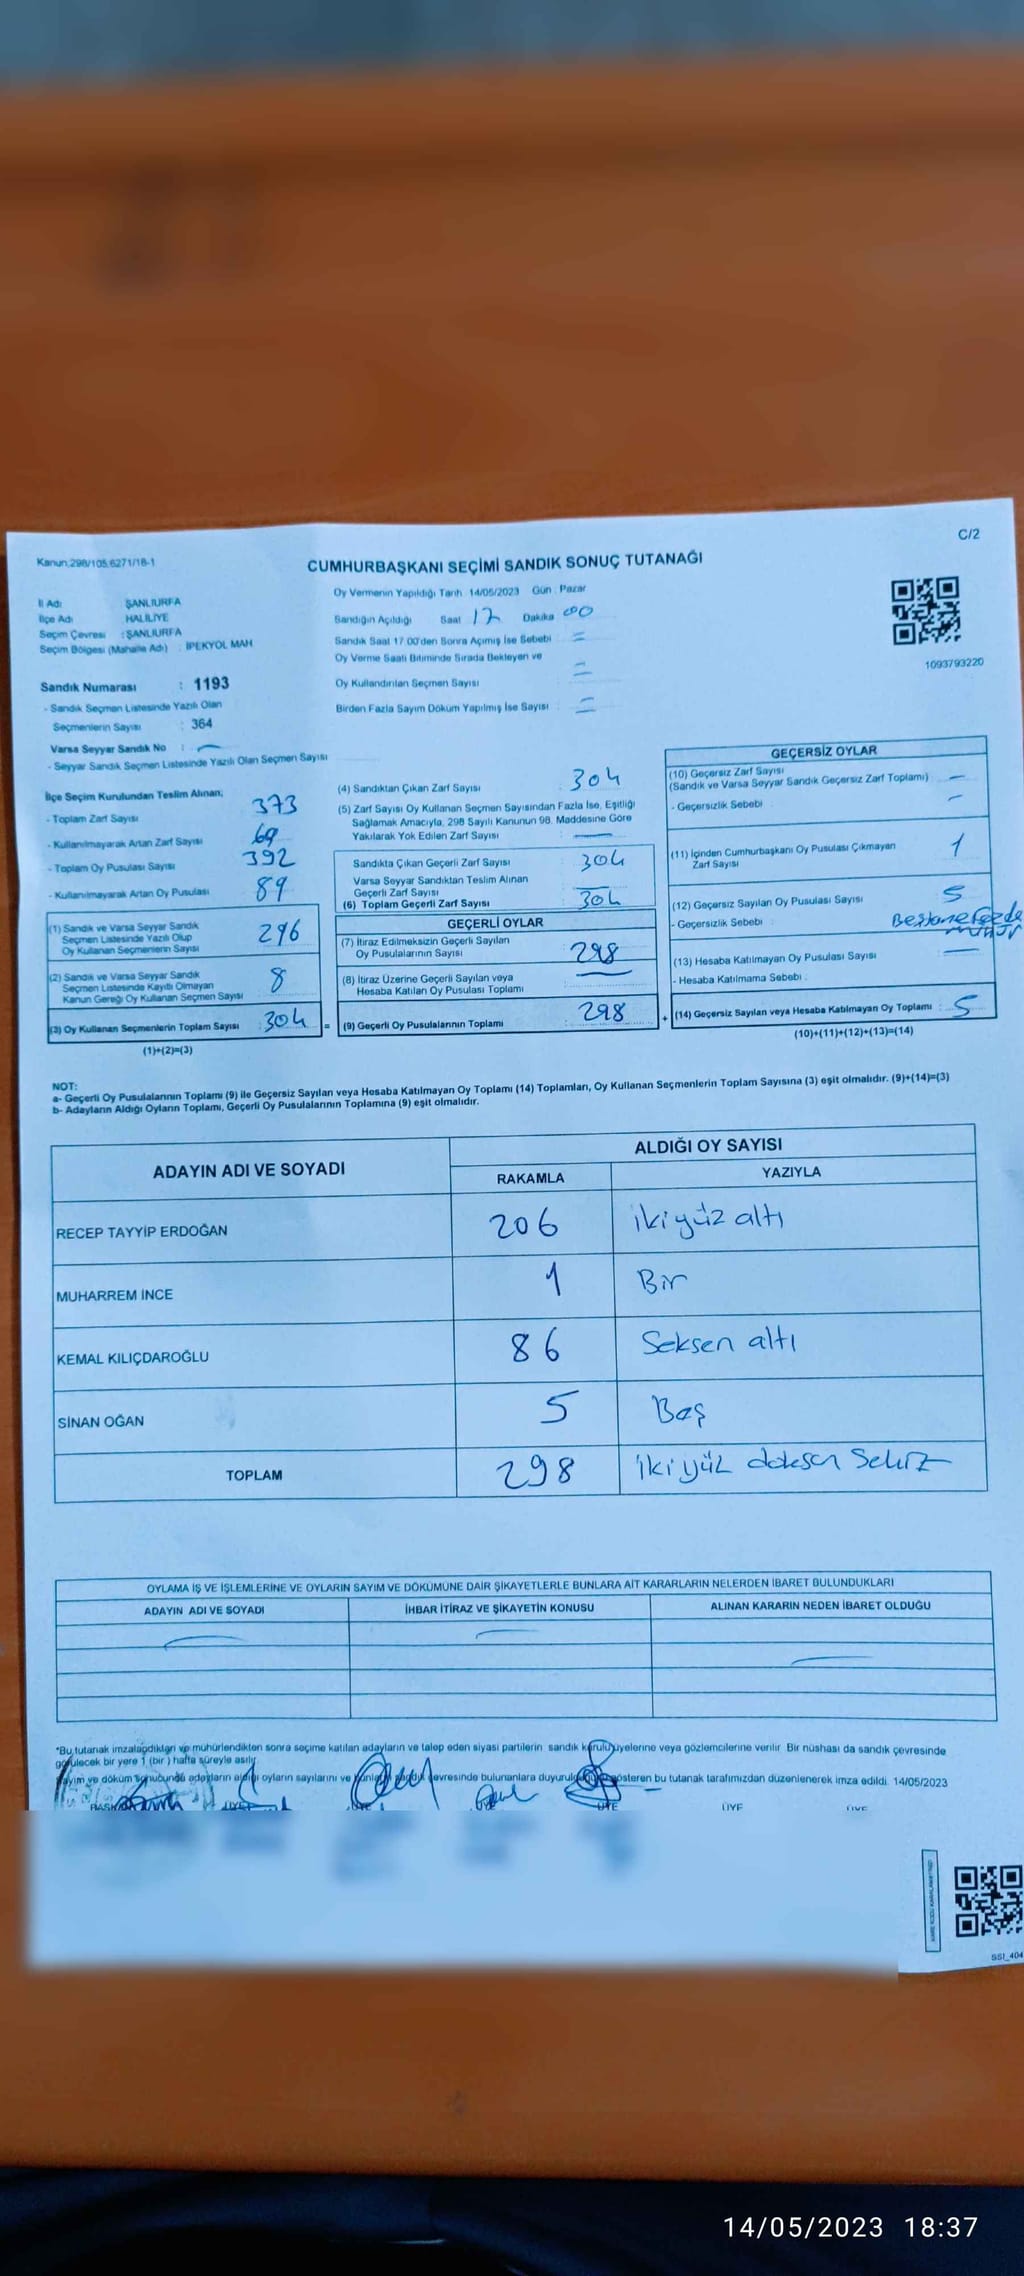 C/2
Kanun.298/105.6271/18-1
CUMHURBAŞKANI SEÇİMİ SANDIK SONUÇ TUTANAĞI
İl Adı : ŞANLIURFA
İlçe Adı : HALİLİYE
Seçim Çevresi : ŞANLIURFA
Seçim Bölgesi (Mahalle Adı) : İPEKYOL MAH
Oy Vermenin Yapıldığı Tarih 14/05/2023 Gün : Pazar
Sandığın Açıldığı Saat 17 Dakika 00
Sandık Saat 17 00'den Sonra Açımış İse Sebebi
Oy Verme Saati Bitiminde Sırada Bekleyen ve
Oy Kullandırılan Seçmen Sayısı
Birden Fazla Sayım Döküm Yapılmış İse Sayısı
1093793220
Sandık Numarası : 1193
- Sandık Seçmen Listesinde Yazılı Olan
Seçmenlerin Sayısı : 364
Varsa Seyyar Sandık No : —
- Seyyar Sandık Seçmen Listesinde Yazılı Olan Seçmen Sayısı
İlçe Seçim Kurulundan Teslim Alınan;
- Toplam Zarf Sayısı 373
- Kullanılmayarak Artan Zarf Sayısı 69
- Toplam Oy Pusulası Sayısı 392
- Kullanılmayarak Artan Oy Pusulası 89
(1) Sandık ve Varsa Seyyar Sandık
Seçmen Listesinde Yazılı Olup
Oy Kullanan Seçmenlerin Sayısı 296
(2) Sandık ve Varsa Seyyar Sandık
Seçmen Listesinde Kayıtlı Olmayan
Kanun Gereği Oy Kullanan Seçmen Sayısı 8
(3) Oy Kullanan Seçmenlerin Toplam Sayısı : 304
(1)+(2)=(3)
(4) Sandıktan Çıkan Zarf Sayısı 304
(5) Zarf Sayısı Oy Kullanan Seçmen Sayısından Fazla İse, Eşitliği
Sağlamak Amacıyla, 298 Sayılı Kanunun 98. Maddesine Göre
Yakılarak Yok Edilen Zarf Sayısı : —
Sandıkta Çıkan Geçerli Zarf Sayısı : 304
Varsa Seyyar Sandıktan Teslim Alınan
Geçerli Zarf Sayısı : —
(6) Toplam Geçerli Zarf Sayısı : 304
GEÇERLİ OYLAR
(7) İtiraz Edilmeksizin Geçerli Sayılan
Oy Pusulalarının Sayısı : 298
(8) İtiraz Üzerine Geçerli Sayılan veya
Hesaba Katılan Oy Pusulası Toplamı : —
= (9) Geçerli Oy Pusulalarının Toplamı : 298
GEÇERSİZ OYLAR
(10) Geçersiz Zarf Sayısı
(Sandık ve Varsa Seyyar Sandık Geçersiz Zarf Toplamı) —
- Geçersizlik Sebebi : —
(11) İçinden Cumhurbaşkanı Oy Pusulası Çıkmayan
Zarf Sayısı 1
(12) Geçersiz Sayılan Oy Pusulası Sayısı 5
- Geçersizlik Sebebi :
(13) Hesaba Katılmayan Oy Pusulası Sayısı —
- Hesaba Katılmama Sebebi :
+ (14) Geçersiz Sayılan veya Hesaba Katılmayan Oy Toplamı : 5
(10)+(11)+(12)+(13)=(14)
NOT:
a- Geçerli Oy Pusulalarının Toplamı (9) ile Geçersiz Sayılan veya Hesaba Katılmayan Oy Toplamı (14) Toplamları, Oy Kullanan Seçmenlerin Toplam Sayısına (3) eşit olmalıdır. (9)+(14)=(3)
b- Adayların Aldığı Oyların Toplamı, Geçerli Oy Pusulalarının Toplamına (9) eşit olmalıdır.
ADAYIN ADI VE SOYADI
ALDIĞI OY SAYISI
RAKAMLA YAZIYLA
RECEP TAYYİP ERDOĞAN 206 ikiyüz altı
MUHARREM İNCE 1 Bir
KEMAL KILIÇDAROĞLU 86 Seksen altı
SİNAN OĞAN 5 Beş
TOPLAM 298 ikiyüz doksan sekiz
OYLAMA İŞ VE İŞLEMLERİNE VE OYLARIN SAYIM VE DÖKÜMÜNE DAİR ŞİKAYETLERLE BUNLARA AİT KARARLARIN NELERDEN İBARET BULUNDUKLARI
ADAYIN ADI VE SOYADI İHBAR İTİRAZ VE ŞİKAYETİN KONUSU ALINAN KARARIN NEDEN İBARET OLDUĞU
*Bu tutanak imzalandıktan ve mühürlendikten sonra seçime katılan adayların ve talep eden siyasi partilerin sandık kurulu üyelerine veya gözlemcilerine verilir. Bir nüshası da sandık çevresinde
görülecek bir yere 1 (bir ) hafta süreyle asılır.
Sayım ve döküm sonucunda adayların aldığı oyların sayılarını ve çevresinde bulunanlara duyurulduğunu gösteren bu tutanak tarafımızdan düzenlenerek imza edildi. 14/05/2023
ÜYE ÜYE ÜYE ÜYE ÜYE
SSI_404
14/05/2023 18:37